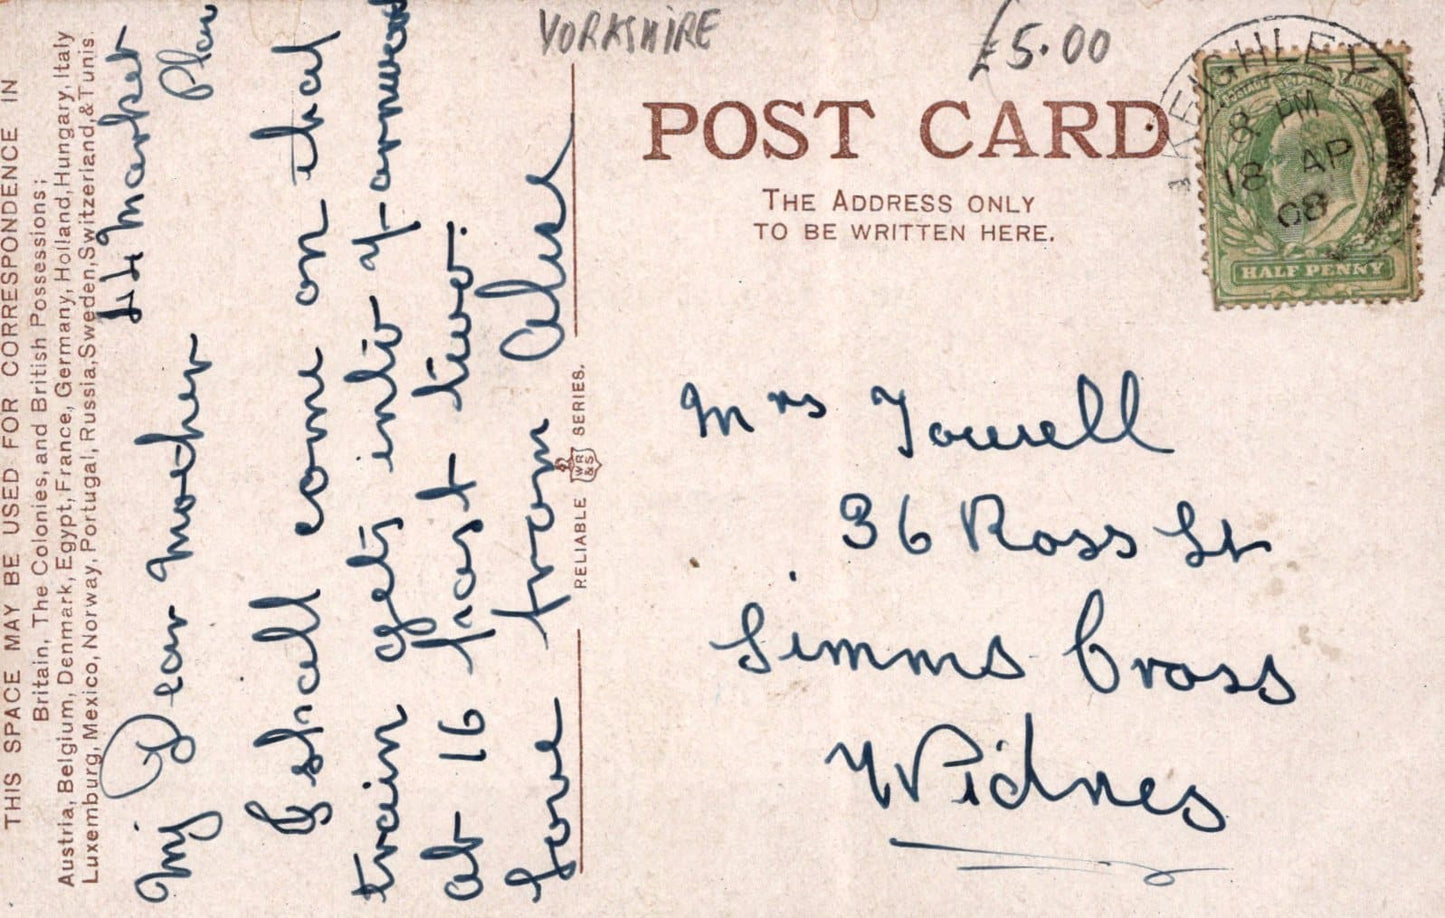 YORKSHIRE
£5.00
POST CARD
THE ADDRESS ONLY
TO BE WRITTEN HERE.
KEIGHLEY
8 PM
18 AP
08
HALF PENNY
THIS SPACE MAY BE USED FOR CORRESPONDENCE IN
Britain, The Colonies, and British Possessions;
Austria, Belgium, Denmark, Egypt, France, Germany, Holland, Hungary, Italy
Luxemburg, Mexico, Norway, Portugal, Russia, Sweden, Switzerland, & Tunis.
44 Market
Place
My Dear Mother
I shall come on that
train gets into
at 16 past two.
love from
RELIABLE WR&S SERIES.
Mrs Towell
36 Ross St
Simms Cross
Widnes